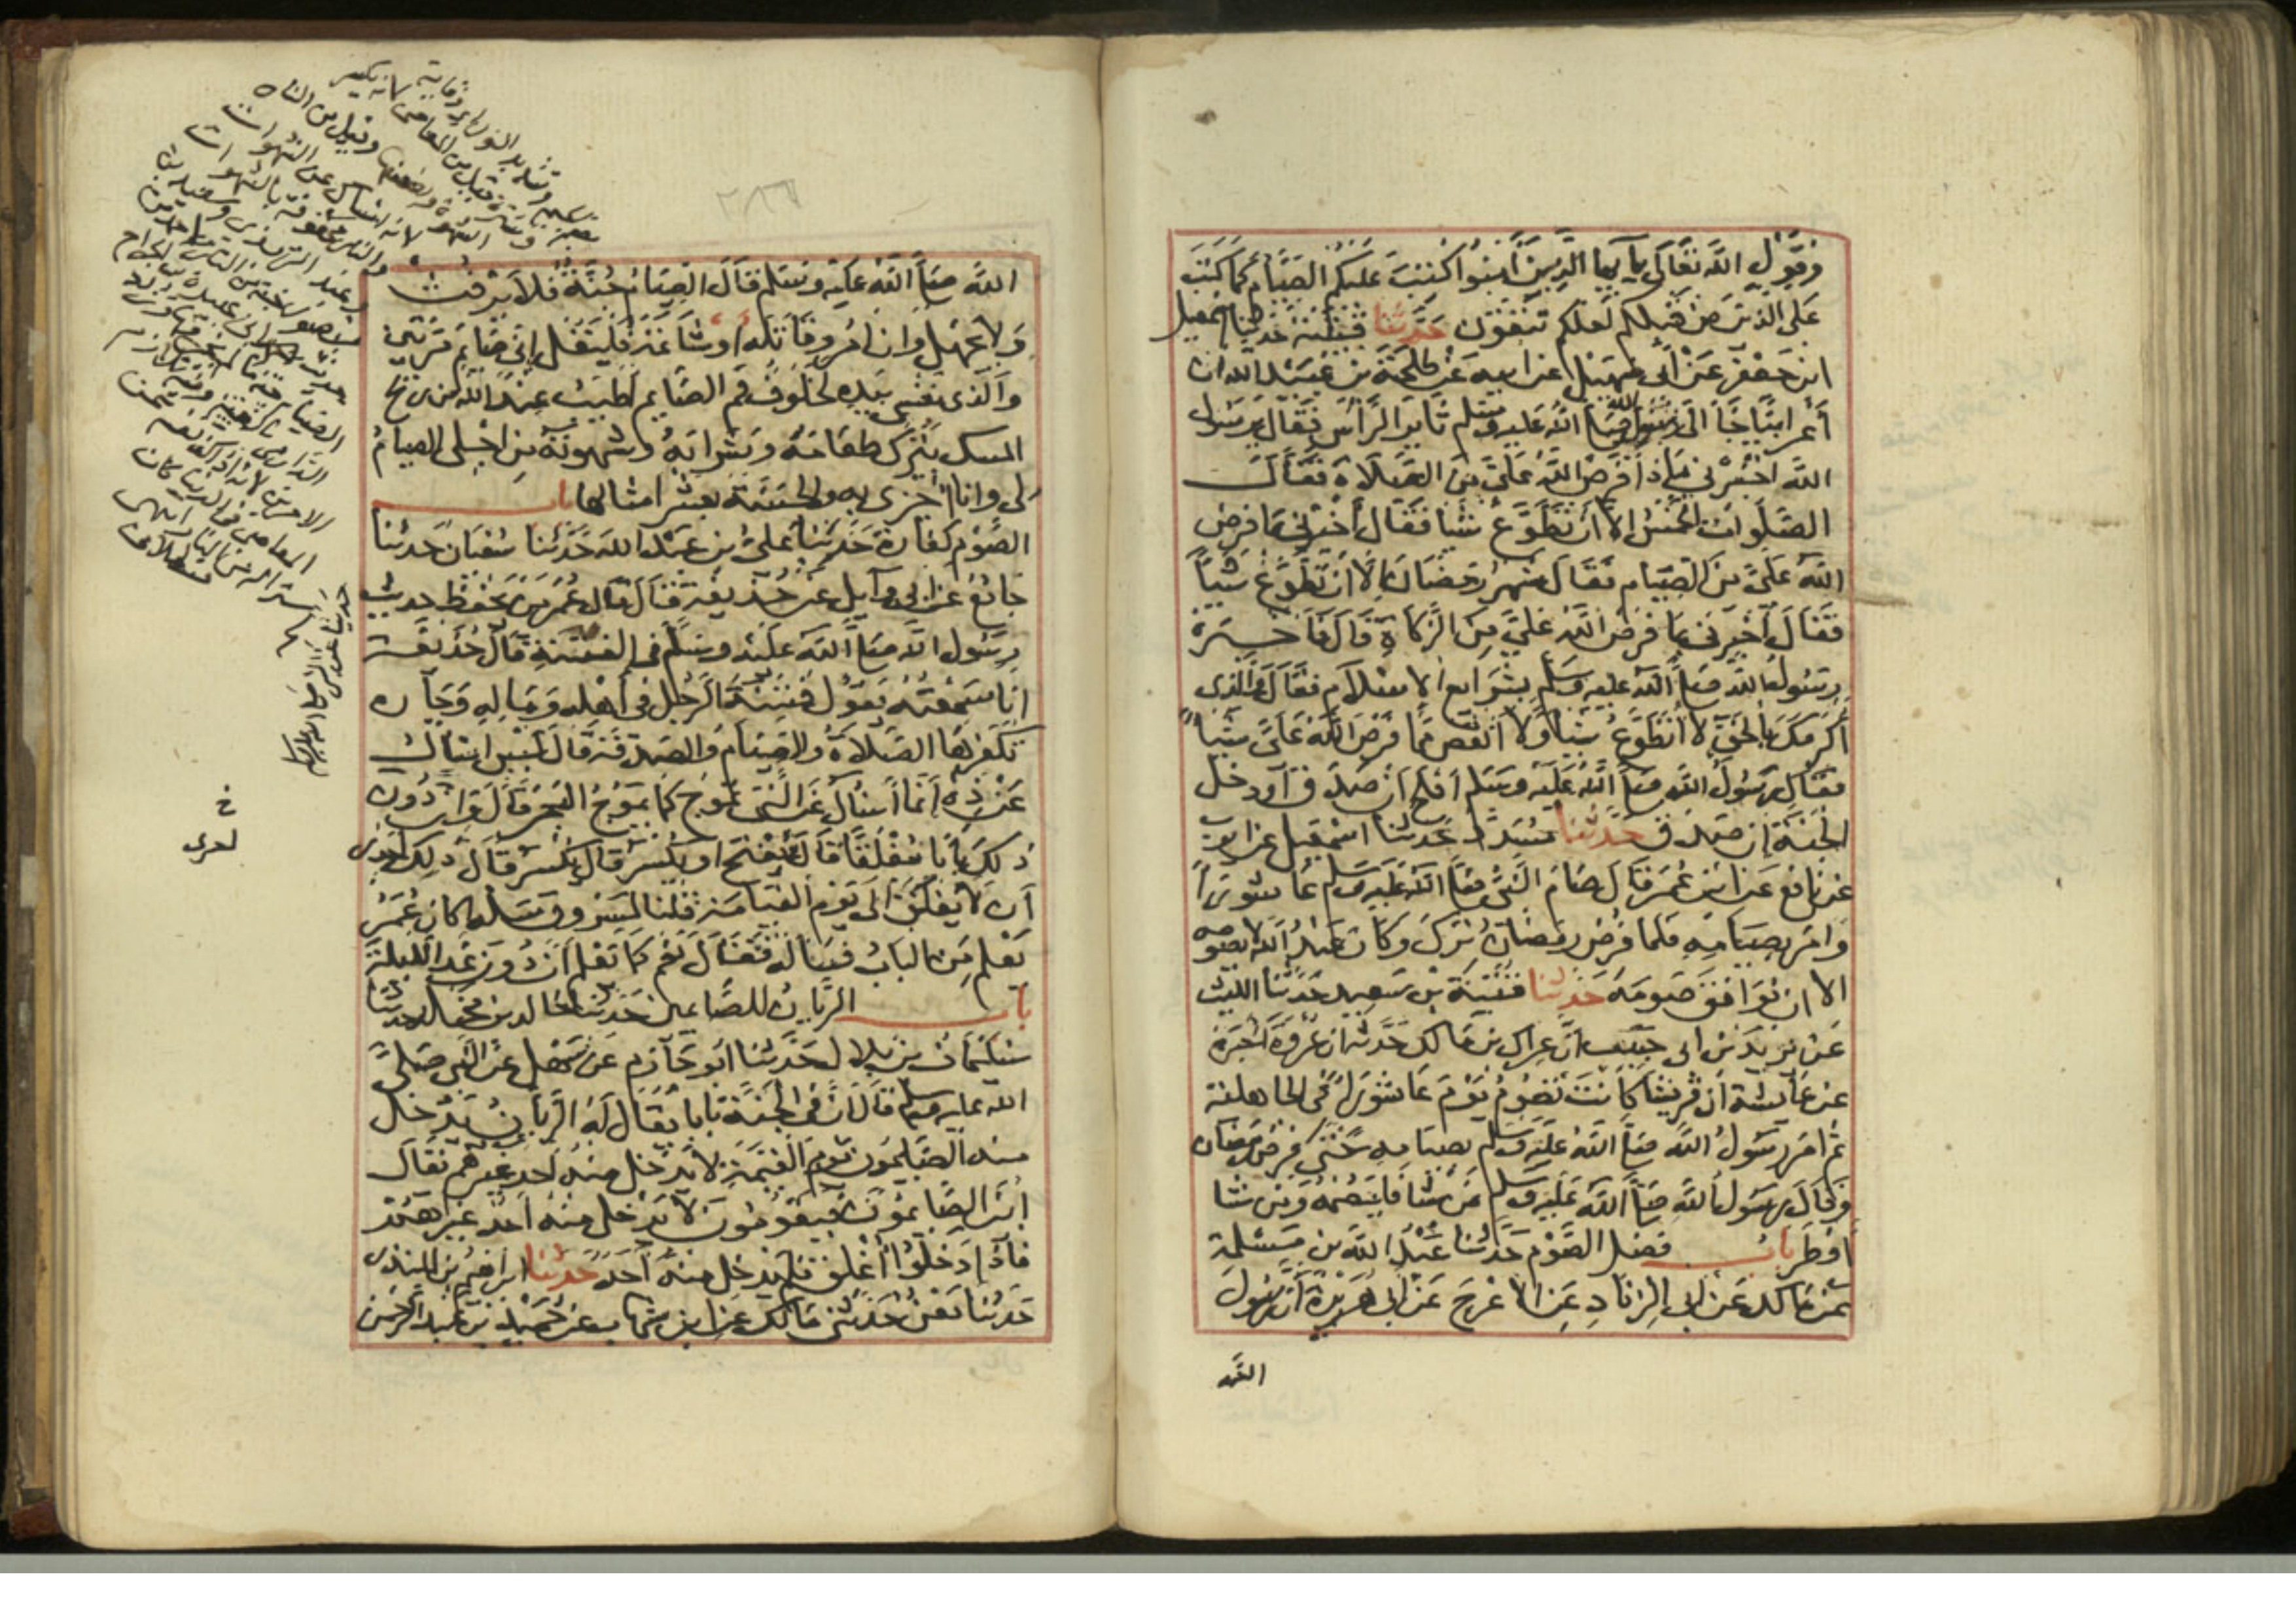 وقول الله تعالى يا أيها الذين آمنوا كتب عليكم الصيام كما كتب
على الذين من قبلكم لعلكم تتقون حدثنا قتيبة حدثنا اسمعيل
ابن جعفر عن أبي سهيل عن ابيه عن طلحة بن عبيد الله ان
أعرابيا جاء الى رسول الله صلى الله عليه وسلم ثاير الرأس فقال يرسول
الله اخبرني ماذا فرض الله علي من الصلاة فقال
الصلوات الخمس الا أن تطوع شيئا فقال أخبرني ما فرض
الله علي من الصيام فقال شهر رمضان إلا أن تطوع شيئا
فقال أخبرني بما فرض الله علي من الزكاة قال فاخبره
رسول الله صلى الله عليه وسلم بشرايع الاسلام فقال والذي
أكرمك بالحق لا أتطوع شيئا ولا أنقص مما فرض الله علي شيئا
فقال رسول الله صلى الله عليه وسلم أفلح ان صدق أو دخل
الجنة إن صدق حدثنا مسدد حدثنا اسمعيل عن ايوب
عن نافع عن ابن عمر قال صام النبي صلى الله عليه وسلم عاشوراء
وامر بصيامه فلما فرض رمضان ترك وكان عبد الله لا يصومه
الا ان يوافق صومه حدثنا قتيبة بن سعيد حدثنا الليث
عن يزيد بن ابي حبيب ان عراك بن مالك حدثه ان عروة اخبره
عن عايشة أن قريشا كانت تصوم يوم عاشوراء في الجاهلية
ثم امر رسول الله صلى الله عليه وسلم بصيامه حتى فرض رمضان
وقال رسول الله صلى الله عليه وسلم من شا فليصمه ومن شا
افطر باب فضل الصوم حدثنا عبد الله بن مسلمة
عن مالك عن ابي الزناد عن الاعرج عن ابي هريرة أن رسول
الله
الله صلى الله عليه وسلم قال الصيام جنة فلا يرفث
ولا يجهل وان امرؤ قاتله أو شاتمه فليقل إني صايم مرتين
والذي نفسي بيده لخلوف فم الصايم اطيب عند الله من ريح
المسك يترك طعامه وشرابه وشهوته من اجلي الصيام
لي وانا أجزي به والحسنة بعشر امثالها باب
الصوم كفارة حدثنا علي بن عبد الله حدثنا سفيان حدثنا
جامع عن ابي وايل عن حذيفة قال قال عمر من يحفظ حديث
رسول الله صلى الله عليه وسلم في الفتنة قال حذيفة
انا سمعته يقول فتنة الرجل في أهله وماله وجاره
تكفرها الصلاة والصيام والصدقة قال ليس اسأل
عن ذه إنما أسأل عن التي تموج كما يموج البحر قال وان دون
ذلك بابا مغلقا قال يفتح او يكسر قال يكسر قال ذلك اجدر
أن لا يغلق الى يوم القيامة فقلنا لمسروق سله أكان عمر
يعلم من الباب فساله فقال نعم كما يعلم أن دون غد الليلة
باب الريان للصائمين حدثنا خالد بن مخلد حدثنا
سليمان بن بلال حدثنا ابو حازم عن سهل عن النبي صلى
الله عليه وسلم قال ان في الجنة بابا يقال له الريان يدخل
منه الصايمون يوم القيمة لا يدخل منه احد غيرهم يقال
أين الصايمون فيقومون لا يدخل منه أحد غيرهم
فاذا دخلوا أغلق فلم يدخل منه أحد حدثنا ابراهيم بن المنذر
حدثنا معن حدثني مالك عن ابن شهاب عن حميد بن عبد الرحمن
خ
احرى